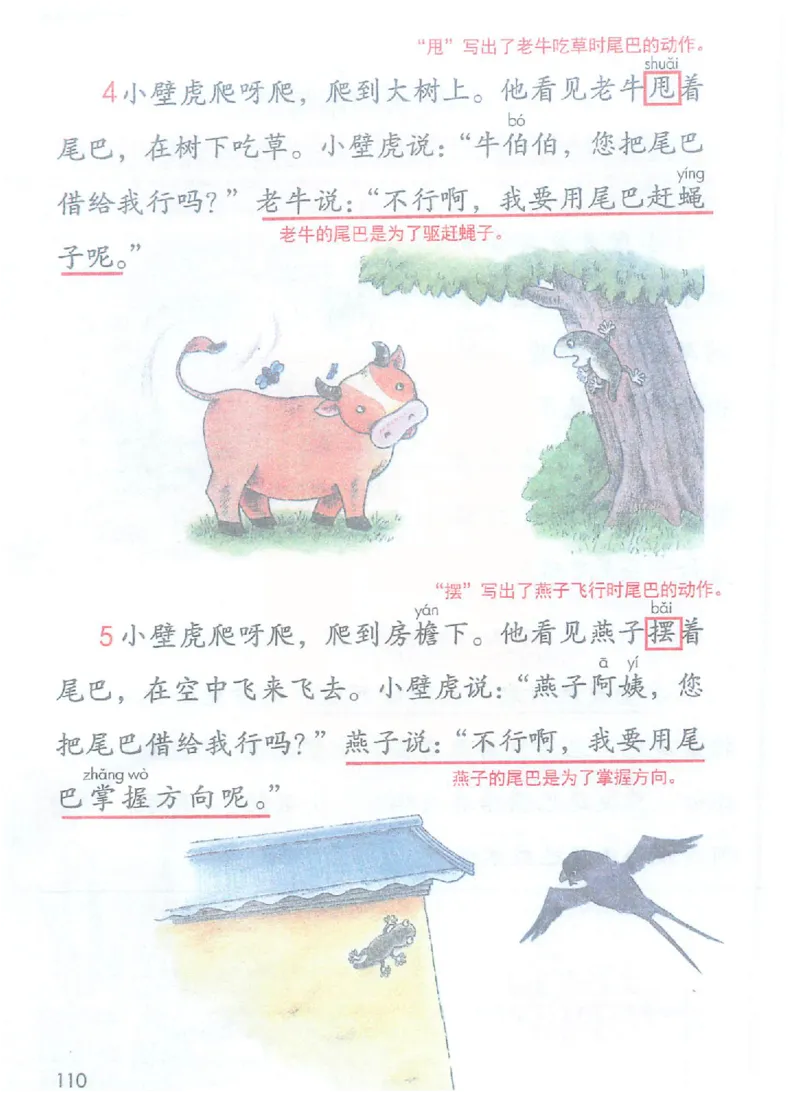 “甩”写出了老牛吃草时尾巴的动作。
shuǎi
4小壁虎爬呀爬，爬到大树上。他看见老牛甩着
bó
尾巴，在树下吃草。小壁虎说：“牛伯伯，您把尾巴
yíng
借给我行吗？”老牛说：“不行啊，我要用尾巴赶蝇
老牛的尾巴是为了驱赶蝇子。
子呢。”
“摆”写出了燕子飞行时尾巴的动作。
yán bǎi
5小壁虎爬呀爬，爬到房檐下。他看见燕子摆着
ā yí
尾巴，在空中飞来飞去。小壁虎说：“燕子阿姨，您
把尾巴借给我行吗？”燕子说：“不行啊，我要用尾
燕子的尾巴是为了掌握方向。
zhǎng wò
巴掌握方向呢。”
110